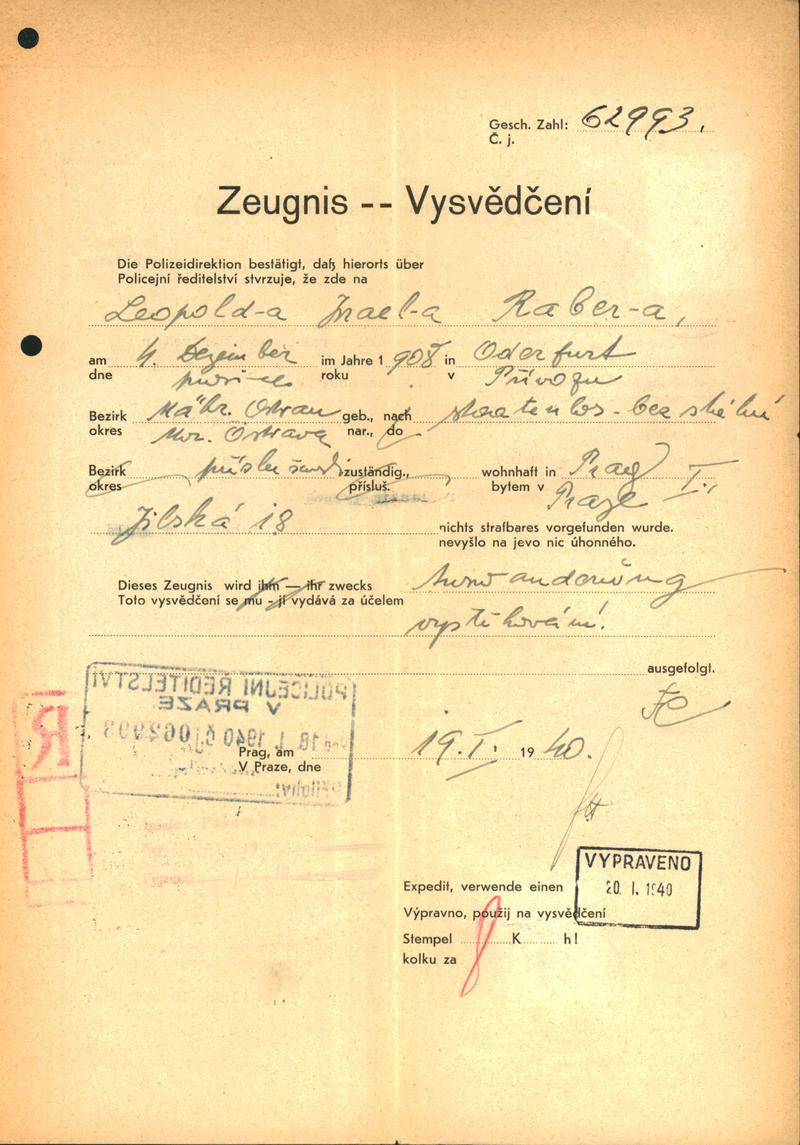 Gesch. Zahl: 62993.
Č. j.
Zeugnis -- Vysvědčení
Die Polizeidirektion bestätigt, daß hierorts über
Policejní ředitelství stvrzuje, že zde na
Leopold-a Israel-a Raber-a,
am 4. Dezember im Jahre 1908 in Oderfurt
dne prosince roku v Přívozu
Bezirk Mähr. Ostrau geb., nach staatenlos - bez stát.
okres Mor. Ostrava nar., do
Bezirk zuständig., wohnhaft in Prag I.,
okres přísluš. bytem v Praze
Jilská 18 nichts strafbares vorgefunden wurde.
nevyšlo na jevo nic úhonného.
Dieses Zeugnis wird ihm — ihr zwecks Auswanderung
Toto vysvědčení se mu - jí vydává za účelem
vystěhování.
ausgefolgt.
POLICEJNÍ ŘEDITELSTVÍ
V PRAZE
1940 062993
Prag, am 19. I. 1940.
V Praze, dne
VYPRAVENO
20. I. 1940
Expedit, verwende einen
Výpravno, použij na vysvědčení
Stempel K h!
kolku za